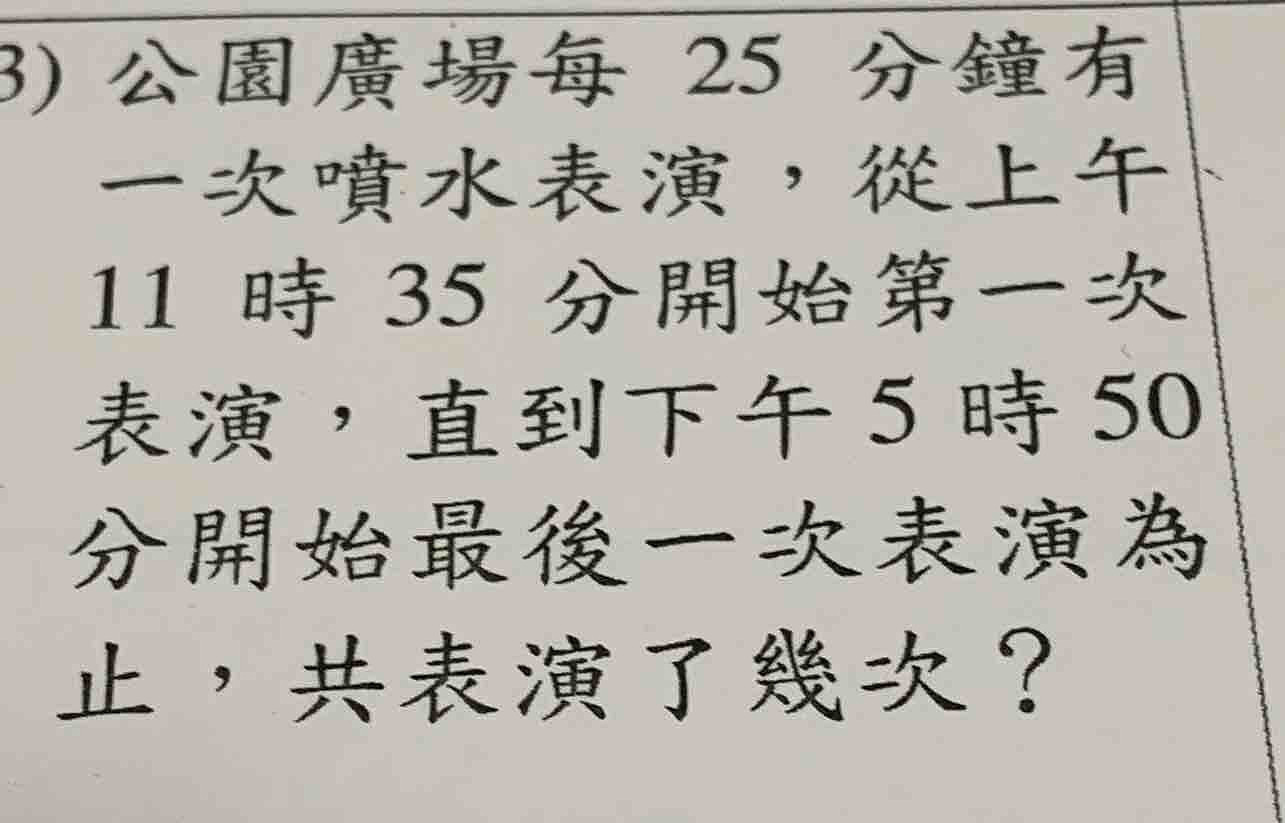 3) 公園廣場每 25 分鐘有
一次噴水表演，從上午
11 時 35 分開始第一次
表演，直到下午 5 時 50
分開始最後一次表演為
止，共表演了幾次？